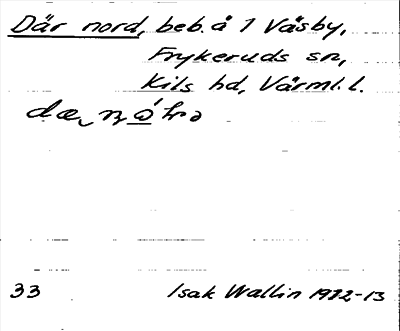 Där nord, beb. å 1 Väsby,
Frykeruds sn,
Kils hd, Värml. l.
33 Isak Wallin 1912-13